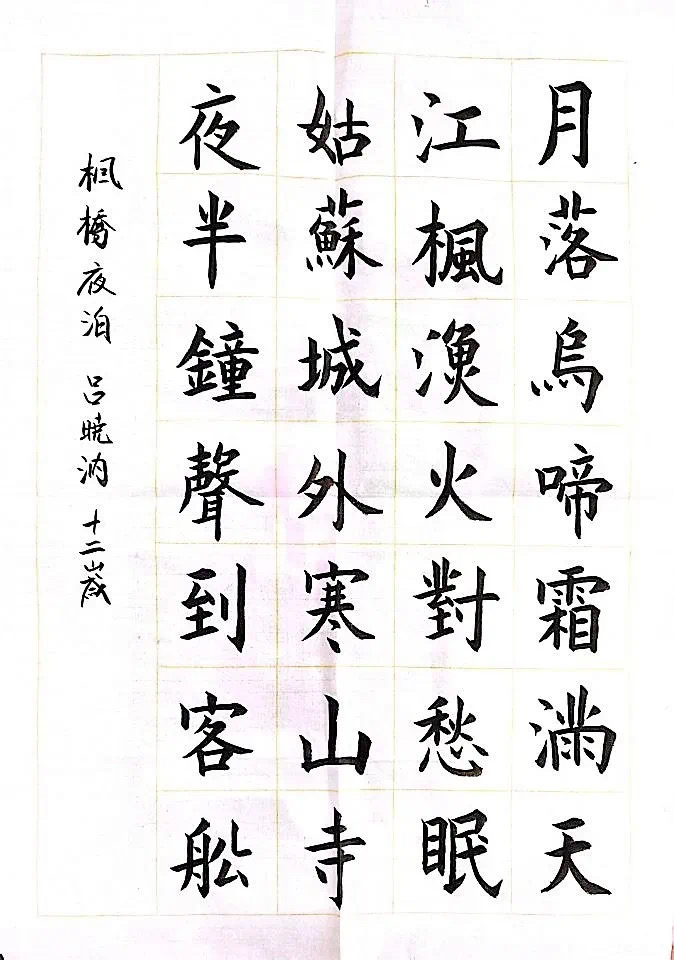 月落烏啼霜滿天
江楓漁火對愁眠
姑蘇城外寒山寺
夜半鐘聲到客船
楓橋夜泊 呂曉汭 十二歲